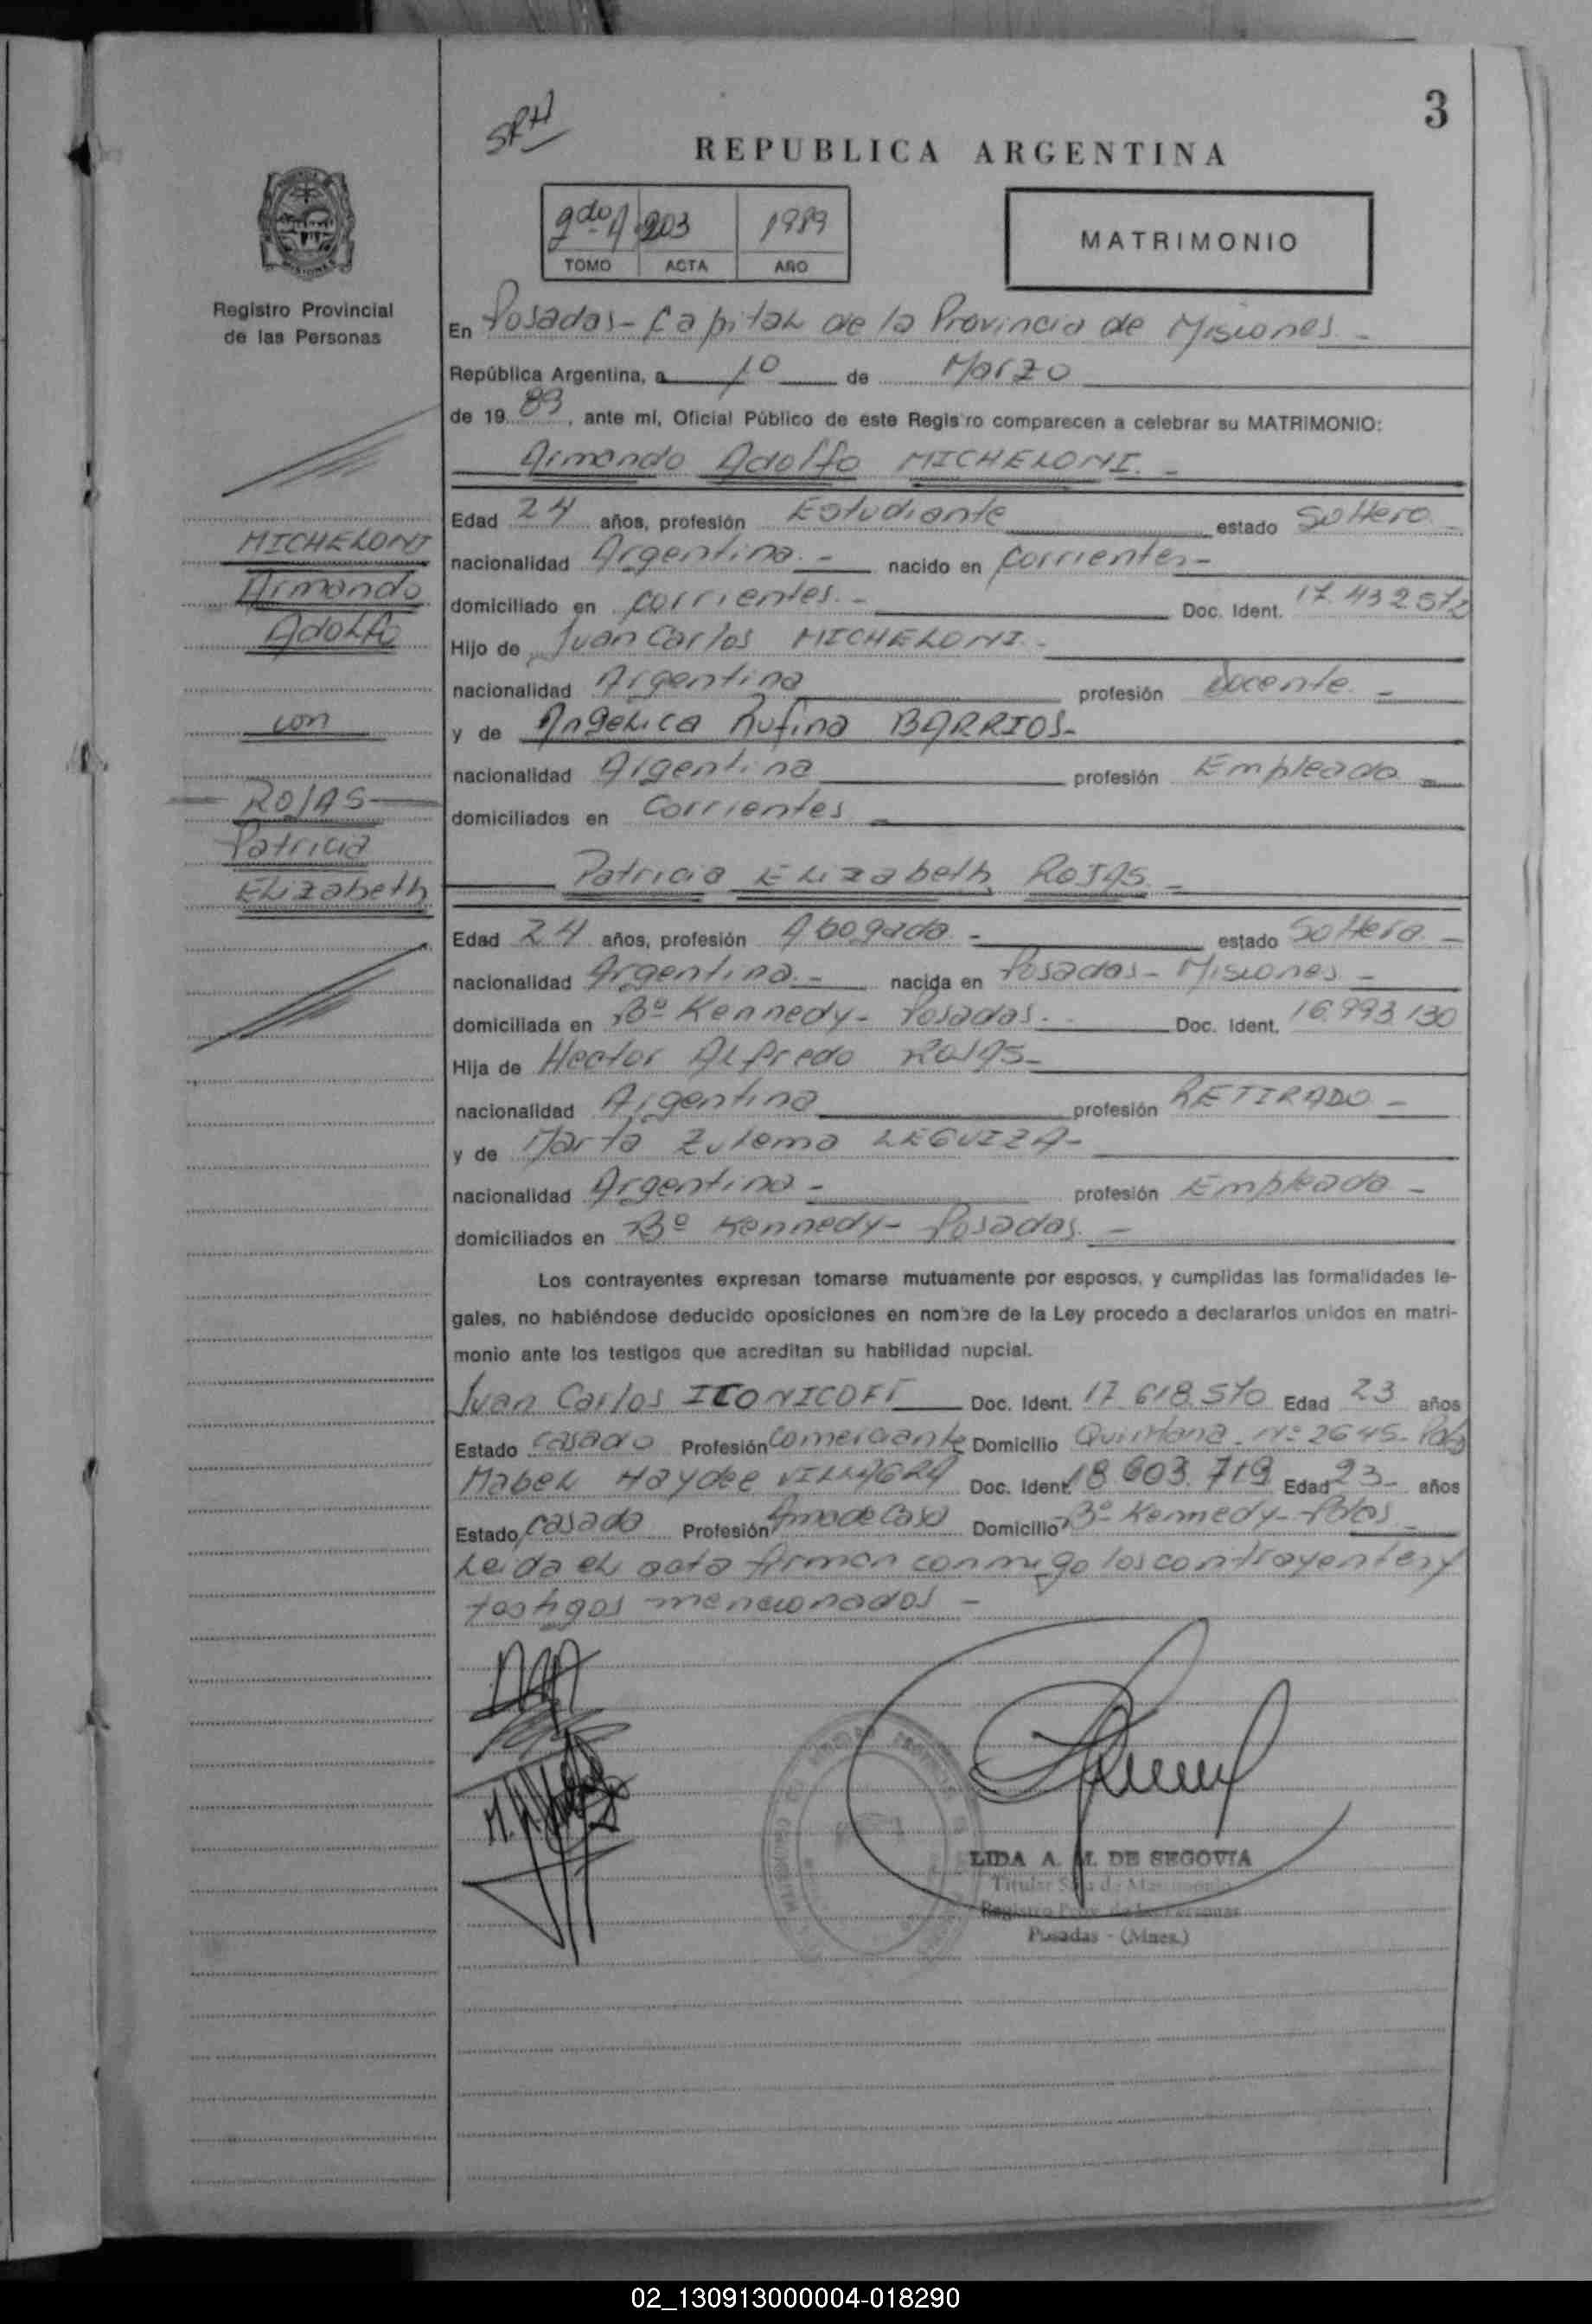 3
SRH
REPUBLICA ARGENTINA
2do A 203 1989
TOMO ACTA AÑO
MATRIMONIO
Registro Provincial
de las Personas
En Posadas - Capital de la Provincia de Misiones -
República Argentina, a 10 de Marzo
de 19 89, ante mí, Oficial Público de este Registro comparecen a celebrar su MATRIMONIO:
Armando Adolfo MICHELONI. -
Edad 24 años, profesión Estudiante estado Soltero
nacionalidad Argentina. - nacido en Corrientes -
domiciliado en Corrientes. - Doc. Ident. 17.432.572
Hijo de Juan Carlos MICHELONI -
nacionalidad Argentina profesión Docente -
y de Angelica Rufina BARRIOS -
nacionalidad Argentina profesión Empleada -
domiciliados en Corrientes -
MICHELONI
Armando
Adolfo
con
ROJAS
Patricia
Elizabeth
Patricia Elizabeth ROJAS -
Edad 24 años, profesión Abogada - estado Soltera -
nacionalidad Argentina - nacida en Posadas - Misiones -
domiciliada en Bº Kennedy - Posadas. - Doc. Ident. 16.993.130
Hija de Hector Alfredo ROJAS -
nacionalidad Argentina profesión RETIRADO -
y de Marta Zulema LEGUIZA -
nacionalidad Argentina - profesión Empleada -
domiciliados en Bº Kennedy - Posadas. -
Los contrayentes expresan tomarse mutuamente por esposos, y cumplidas las formalidades le-
gales, no habiéndose deducido oposiciones en nombre de la Ley procedo a declararlos unidos en matri-
monio ante los testigos que acreditan su habilidad nupcial.
Juan Carlos ITONICOFF Doc. Ident. 17.618.570 Edad 23 años
Estado casado Profesión Comerciante Domicilio Quintana - Nº 2645 - Pdas
Mabel Haydee VILLAGRA Doc. Ident. 18.603.719 Edad 23 - años
Estado casada Profesión Ama de Casa Domicilio Bº Kennedy - Pdas -
Leida el acta firman conmigo los contrayentes y
testigos mencionados -
LIDA A. M. DE SEGOVIA
Titular Sala de Matrimonio
Registro Prov. de las Personas
Posadas - (Mnes.)
02_130913000004-018290